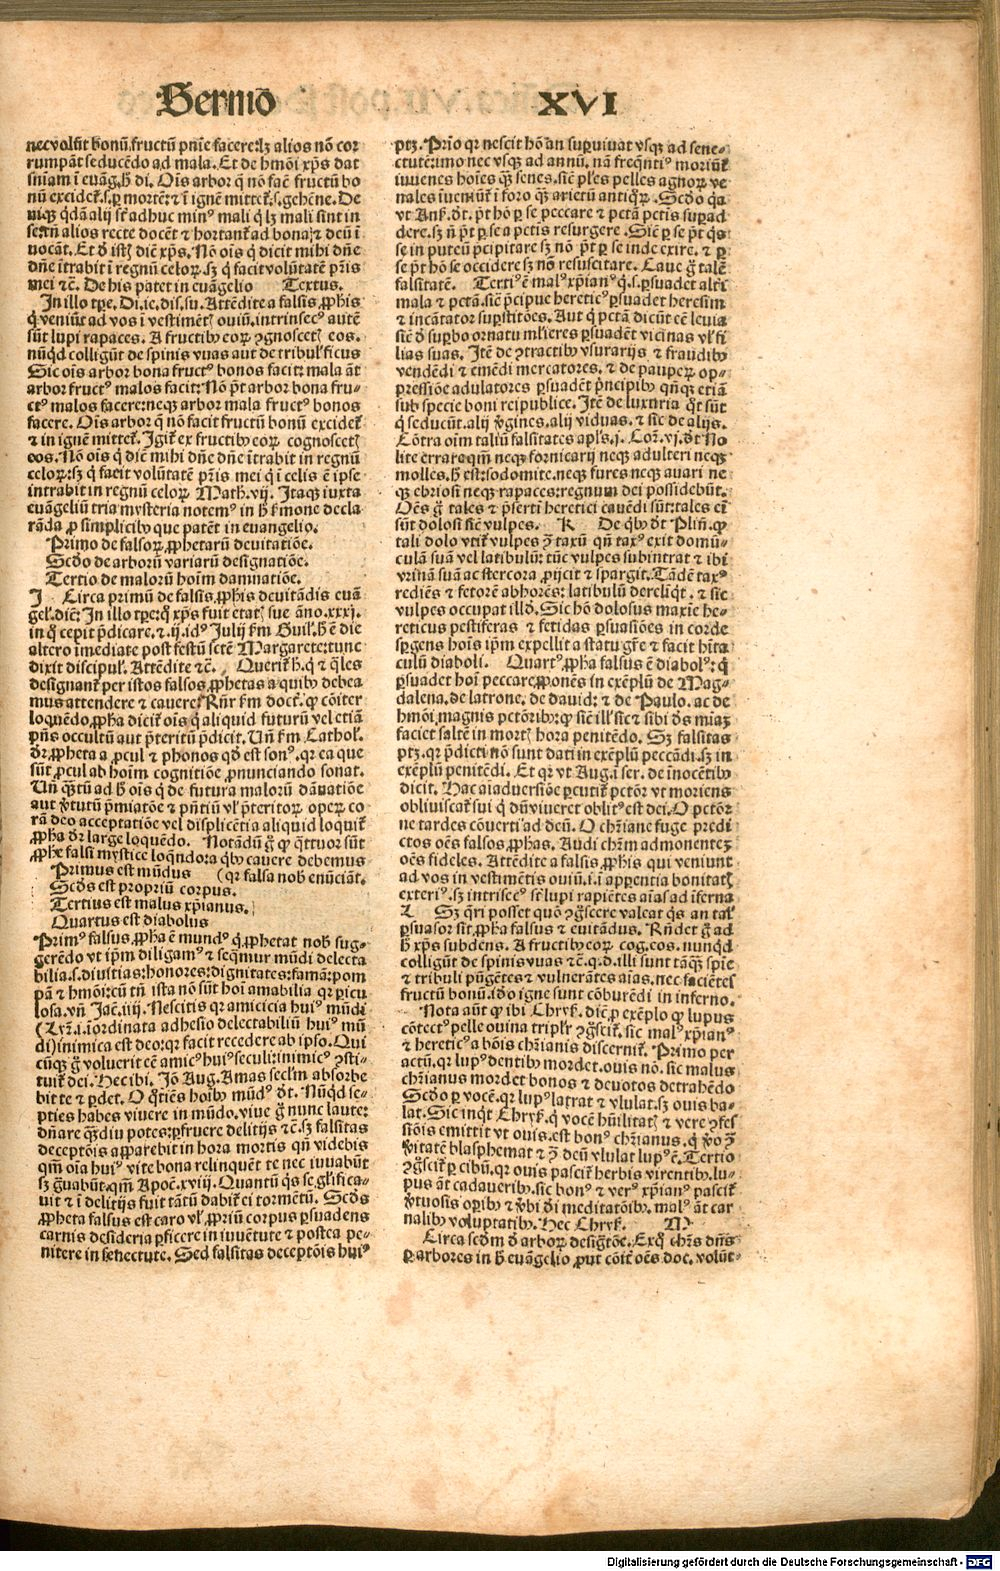 Sermo XVI
nec volũt bonũ fructũ pnĩe facere: lꝫ alios nõ cor
rumpãt seducẽdo ad mala. Et de hmõi xp̃s dat
sniam ĩ euãg. ꝧ di. Oĩs arbor q̃ nõ facẽ fructũ bo
nũ excidet᷑. s. ꝑ mortẽ: ⁊ ĩ ignẽ mittet᷑. s. gehẽne. De
niqꝫ q̃dã alij st̃ adhuc min⁹ mali q̃ lꝫ mali sint in
se tñ alios recte docẽt ⁊ hortant᷑ ad bona ⁊ deũ ĩ
uocãt. Et đ istꝭ dic̃ xp̃s. Nõ oĩs q̃ dicit mihi dñe
dñe ĩtrabit ĩ regnũ celoꝝ. sꝫ q̃ facit volũtatẽ pr̃is
mei ⁊c̃. De his patet in euãgelio Textus.
In illo tꝑe. Di. ie. dis. su. Attẽdite a falsis ꝓphis
q̃ veniũt ad vos ĩ vestimẽtꝭ ouiũ. intrinsec⁹ autẽ
sũt lupi rapaces. A fructibꝰ eoꝝ ꝯgnoscetꝭ eos.
nũqd colligũt de spinis vuas aut de tribul̃ ficus
Sic oĩs arbor bona fruct⁹ bonos facit: mala ãt
arbor fruct⁹ malos facit: Nõ põt arbor bona fru-
ct⁹ malos facere: neqꝫ arbor mala fruct⁹ bonos
facere. Oĩs arbor q̃ nõ facit fructũ bonũ excidet᷑
⁊ in ignẽ mittet᷑. Igit᷑ ex fructibꝰ eoꝝ cognoscetꝭ
eos. Nõ oĩs q̃ dic̃ mihi dñe dñe ĩtrabit in regnũ
celoꝝ: sꝫ q̃ facit volũtatẽ pr̃is mei q̃ ĩ celis ẽ ipse
intrabit in regnũ celoꝝ Math. vij. Itaqꝫ iuxta
euãgeliũ tria mysteria notem⁹ in ꝧ smone decla
rãda ꝓ simplicibꝰ que patẽt in euangelio.
Primo de falsoꝝ ꝓphetarũ deuitatiõe.
Scđo de arborũ variarũ designatiõe.
Tertio de malorũ hoĩm damnatiõe.
I Circa primũ de falsis ꝓphis deuitãdis euã
gel̃. dic̃: In illo tꝑe: q̃ xp̃s fuit etatꝭ sue ãno. xxxj.
in q̃ cepit p̃dicare. ⁊. ij. id⁹ Julij sm Guil̃. ꝧ ẽ die
altero ĩmediate post festũ scтẽ Margarete: tunc
dixit discipul̃. Attẽdite ⁊c̃. Querit᷑ ꝧ. q̃ ⁊ q̃les
designant᷑ per istos falsos ꝓphetas a quibꝰ debea
mus attendere ⁊ cauere: Rñr sm doct᷑. ꝙ cõiter
loquẽdo ꝓpha dicit᷑ oĩs q̃ aliquid futurũ vel etiã
pñs occultũ aut p̃teritũ p̃dicit. Vñ sm Cathol̃.
đr ꝓpheta a ꝓcul ⁊ phonos qđ est son⁹. qr ea que
sũt ꝓcul ad hoĩm cognitiõe ꝓnunciando sonat.
Vñ q̃tũ ad ꝧ oĩs q̃ de futura malorũ dãnatiõe
aut ꝟtutũ p̃miatõe ⁊ pñtiũ vl̃ p̃teritoꝝ opeꝝ co
rã deo acceptatiõe vel displicẽtia aliquid loquit᷑
ꝓpha đr large loquẽdo. Notãdũ g̃ ꝙ q̃ttuor sũt
ꝓphe falsi mystice loq̃ndo: a q̃bꝰ cauere debemus
Primus est mũdus (qr falsa nob̃ enũciãt.
Scđs est propriũ corpus.
Tertius est malus xp̃ianus.
Quartus est diabolus
Prim⁹ falsus ꝓpha ẽ mund⁹ q̃ ꝓphetat nob̃ sug-
gerẽdo vt ip̃m diligam⁹ ⁊ seq̃mur mũdi delecta
bilia. s. diuitias: honores: dignitates: famã: pom
pã ⁊ hmõi: cũ tñ ista nõ sũt hoĩ amabilia qr picu
losa. vñ Jac̃. iiij. Nescitis qr amicicia hui⁹ mũdi
(Lyr̃. i. ĩordinata adhesio delectabiliũ hui⁹ mũ
di) inimica est deo: qr facit recedere ab ipso. Qui
cũqꝫ g̃ voluerit eẽ amic⁹ hui⁹ seculi: inimic⁹ ꝯsti-
tuit᷑ dei. Hec ibi. Jõ Aug. Amas secl̃m absorbe
bit te ⁊ ꝑdet. O q̃tiẽs hoĩbꝰ mũd⁹ đt. Nũqd se-
pties habes viuere in mũdo. viue g̃ nunc laute:
dñare q̃diu potes: ꝑfruere delitijs ⁊c̃. sꝫ falsitas
deceptõis apparebit in hora mortis qñ videbis
qm̃ oĩa hui⁹ vite bona relinquẽt te nec iuuabũt
sꝫ g̃uabũt. qm̃ Apoc̃. xviij. Quantũ q̃s se gl̃ifica-
uit ⁊ ĩ delitijs fuit tãtũ dabit᷑ ei tormẽtũ. Scđs
ꝓpheta falsus est caro vl̃ ꝓpriũ corpus ꝑsuadens
carnis desideria ꝑficere in iuuẽtute ⁊ postea pe-
nitere in senectute. Sed falsitas deceptõis hui⁹
ptꝫ. Prĩo qr nescit hõ an suꝑuiuat vsqꝫ ad sene-
ctutẽ: imo nec vsqꝫ ad annũ. nã freq̃nti⁹ moriũt᷑
iuuenes hoĩes q̃ꝫ senes. sic̃ pl̃es pelles agnoꝝ ve
nales ĩueniũt᷑ ĩ foro q̃ꝫ arietũ antiq̃ꝝ. Scđo q̃a
vt Ans̃. đt. põt hõ ꝑ se peccare ⁊ pctã pctis suꝑad
dere. sꝫ ñ põt ꝑ se a pctis resurgere. Sic̃ ꝑ se põt q̃s
se in puteũ p̃cipitare sꝫ nõ põt ꝑ se inde exire. ⁊ ꝑ
se põt hõ se occidere sꝫ nõ resuscitare. Caue g̃ talẽ
falsitatẽ. Terti⁹ ẽ mal⁹ xp̃ian⁹ q̃. s. ꝑsuadet alt̃i
mala ⁊ pctã. sic̃ p̃cipue heretic⁹ ꝑsuadet heresim
⁊ incãtator suꝑstitões. Aut q̃ pctã dicũt eẽ leuia
sic̃ đ suꝑbo ornatu ml̃ieres ꝑsuadẽt vicinas vl̃ fi
lias suas. Itẽ de ꝯtractibꝰ vsurarijs ⁊ fraudibꝰ
vendẽdi ⁊ emẽdi mercatores. ⁊ de pauꝑeꝝ op-
pressiõe adulatores ꝑsuadẽt p̃ncipibꝰ qñqꝫ etiã
sub specie boni reipublice. Itẽ de luxuria q̃t sũt
q̃ seducũt. alij ꝟgines. alij viduas. ⁊ sic̃ de alijs.
Cõtra oĩm taliũ falsitates apl̃s. j. Cor̃. vj. đt No
lite errare qm̃ neqꝫ fornicarij neqꝫ adulteri neqꝫ
molles. ꝧ est: sodomite. neqꝫ fures neqꝫ auari ne
qꝫ ebriosi neqꝫ rapaces: regnum dei possidebũt.
Oẽs g̃ tales ⁊ p̃serti heretici cauẽdi sũt: tales eĩ
sũt dolosi sic̃ vulpes. K De q̃bꝰ đt Plin̄. ꝙ
tali dolo vtit᷑ vulpes ꝯ̃ taxũ qñ tax⁹ exit domũ-
culã suã vel latibulũ: tũc vulpes subintrat ⁊ ibi
vrinã suã ac stercora ꝓijcit ⁊ spargit. Tãdẽ tax⁹
rediẽs ⁊ fetorẽ abhorẽs: latibulũ derelĩqt. ⁊ sic
vulpes occupat illđ. Sic hõ dolosus maxĩe he-
reticus pestiferas ⁊ fetidas ꝑsuasiões in corde
spgens hoĩs ip̃m expellit a statu gr̃e ⁊ facit hĩta
culũ diaboli. Quart⁹ ꝓpha falsus ẽ diabol⁹: q̃
ꝑsuadet hoĩ peccare ꝓponẽs in exẽplũ de Mag-
dalena. de latrone. de dauid: ⁊ de Paulo. ac de
hmõi magnis pctõribꝰ: ꝙ sic̃ ill̃ sic̃ ⁊ sibi đs miaꝫ
faciet saltẽ in mortꝭ hora penitẽdo. Sꝫ falsitas
ptꝫ. qr p̃dicti nõ sunt dati in exẽplũ peccãdi. sꝫ in
exẽplũ penitẽdi. Et qr vt Aug. i ser. de ĩnocẽtibꝰ
dicit. Hac aiaduersiõe ꝑcutit᷑ pctõr vt moriens
obliuiscat᷑ sui q̃ dũ viueret oblit⁹ est dei. O pctõr
ne tardes cõuerti ad deũ. O chr̃iane fuge predi
ctos oẽs falsos ꝓphas. Audi chr̃m admonenteꝫ
oẽs fideles. Attẽdite a falsis ꝓphis qui veniunt
ad vos in vestimẽtis ouiũ. i. ĩ apparentia bonitatꝭ
exteri⁹. sꝫ intrisec⁹ st̃ lupi rapiẽtes aĩas ad ĩferna
L Sꝫ q̃ri posset quõ ꝯg̃scere valeat q̃s an tal̃
ꝑsuasor sit ꝓpha falsus ⁊ euitãdus. Rñdet g̃ ad
ꝧ xp̃s subdens. A fructibꝰ eoꝝ cog. eos. nunqd
colligũt de spinis vuas ⁊c̃. q. d. illi sunt tãq̃ꝫ spĩe
⁊ tribuli pũgẽtes ⁊ vulnerãtes aĩas. nec faciẽtes
fructũ bonũ. iđo igne sunt cõburẽdi in inferno.
Nota aũt ꝙ ibi Chrys̃. dic̃ ꝑ exẽplo ꝙ lupus
cõtect⁹ pelle ouina tripl̃r ꝯg̃scit᷑. sic mal⁹ xp̃ian⁹
⁊ heretic⁹ a bõis chr̃ianis discernit᷑. Primo per
actũ. qr lup⁹ dentibꝰ mordet. ouis nõ. sic malus
chr̃ianus mordet bonos ⁊ deuotos detrahẽdo
Scđo ꝑ vocẽ. qr lup⁹ latrat ⁊ vlulat. sꝫ ouis ba-
lat. Sic inq̃t Chrys̃. q̃ vocẽ hũilitatꝭ ⁊ vere ꝯfes
siõis emittit vt ouis. est bon⁹ chr̃ianus. q̃ ꝟo ꝯ̃
ꝟitatẽ blasphemat ⁊ ꝯ̃ deũ vlulat lup⁹ ẽ. Tertio
ꝯg̃scit᷑ ꝑ cibũ. qr ouis pascit᷑ herbis virentibꝰ. lu-
pus ãt cadaueribꝰ. sic bon⁹ ⁊ ver⁹ xp̃ian⁹ pascit᷑
ꝟtuosis oꝑibꝰ ⁊ ꝟbi đi meditatõibꝰ. mal⁹ ãt car
nalibꝰ voluptatibꝰ. Hec Chrys̃. M
Circa scđm đ arboꝝ desig̃tõe. Exq̃ chr̃s dñs
ꝑ arbores in ꝧ euãgelio ꝓut cõit̃ oẽs doc. volũt-
Digitalisierung gefördert durch die Deutsche Forschungsgemeinschaft - DFG